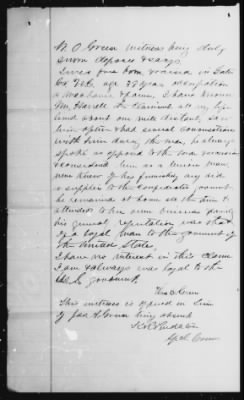 W. O. Green witness being duly
sworn deposes & says
I lived free born & raised in Gates
Co N.C. age 37 years occupation
a mechanic & farmer, I have known
Mr. Harell the claimant all my life
lived about one mile distant, saw
him often & had several conversations
with him during the war, he always
spoke as opposed to the war & secession
& considered him as a Union man
never knew of his furnishing any aid
or supplies to the confederate governmt
he remained at home all the time &
attended to his own business
his general reputation was that
of a loyal man to the government of
the United States.
I have no interest in this claim
I am & always was loyal to the
U. S. government.
Green
This witness is offered in lieu
of Jas. A. Green being absent
Spl Com